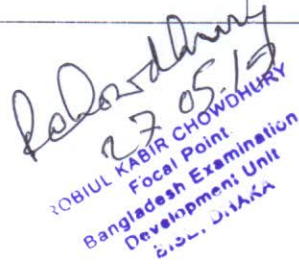 RChowdhury
27.05.19
ROBIUL KABIR CHOWDHURY
Focal Point
Bangladesh Examination
Development Unit
DHAKA